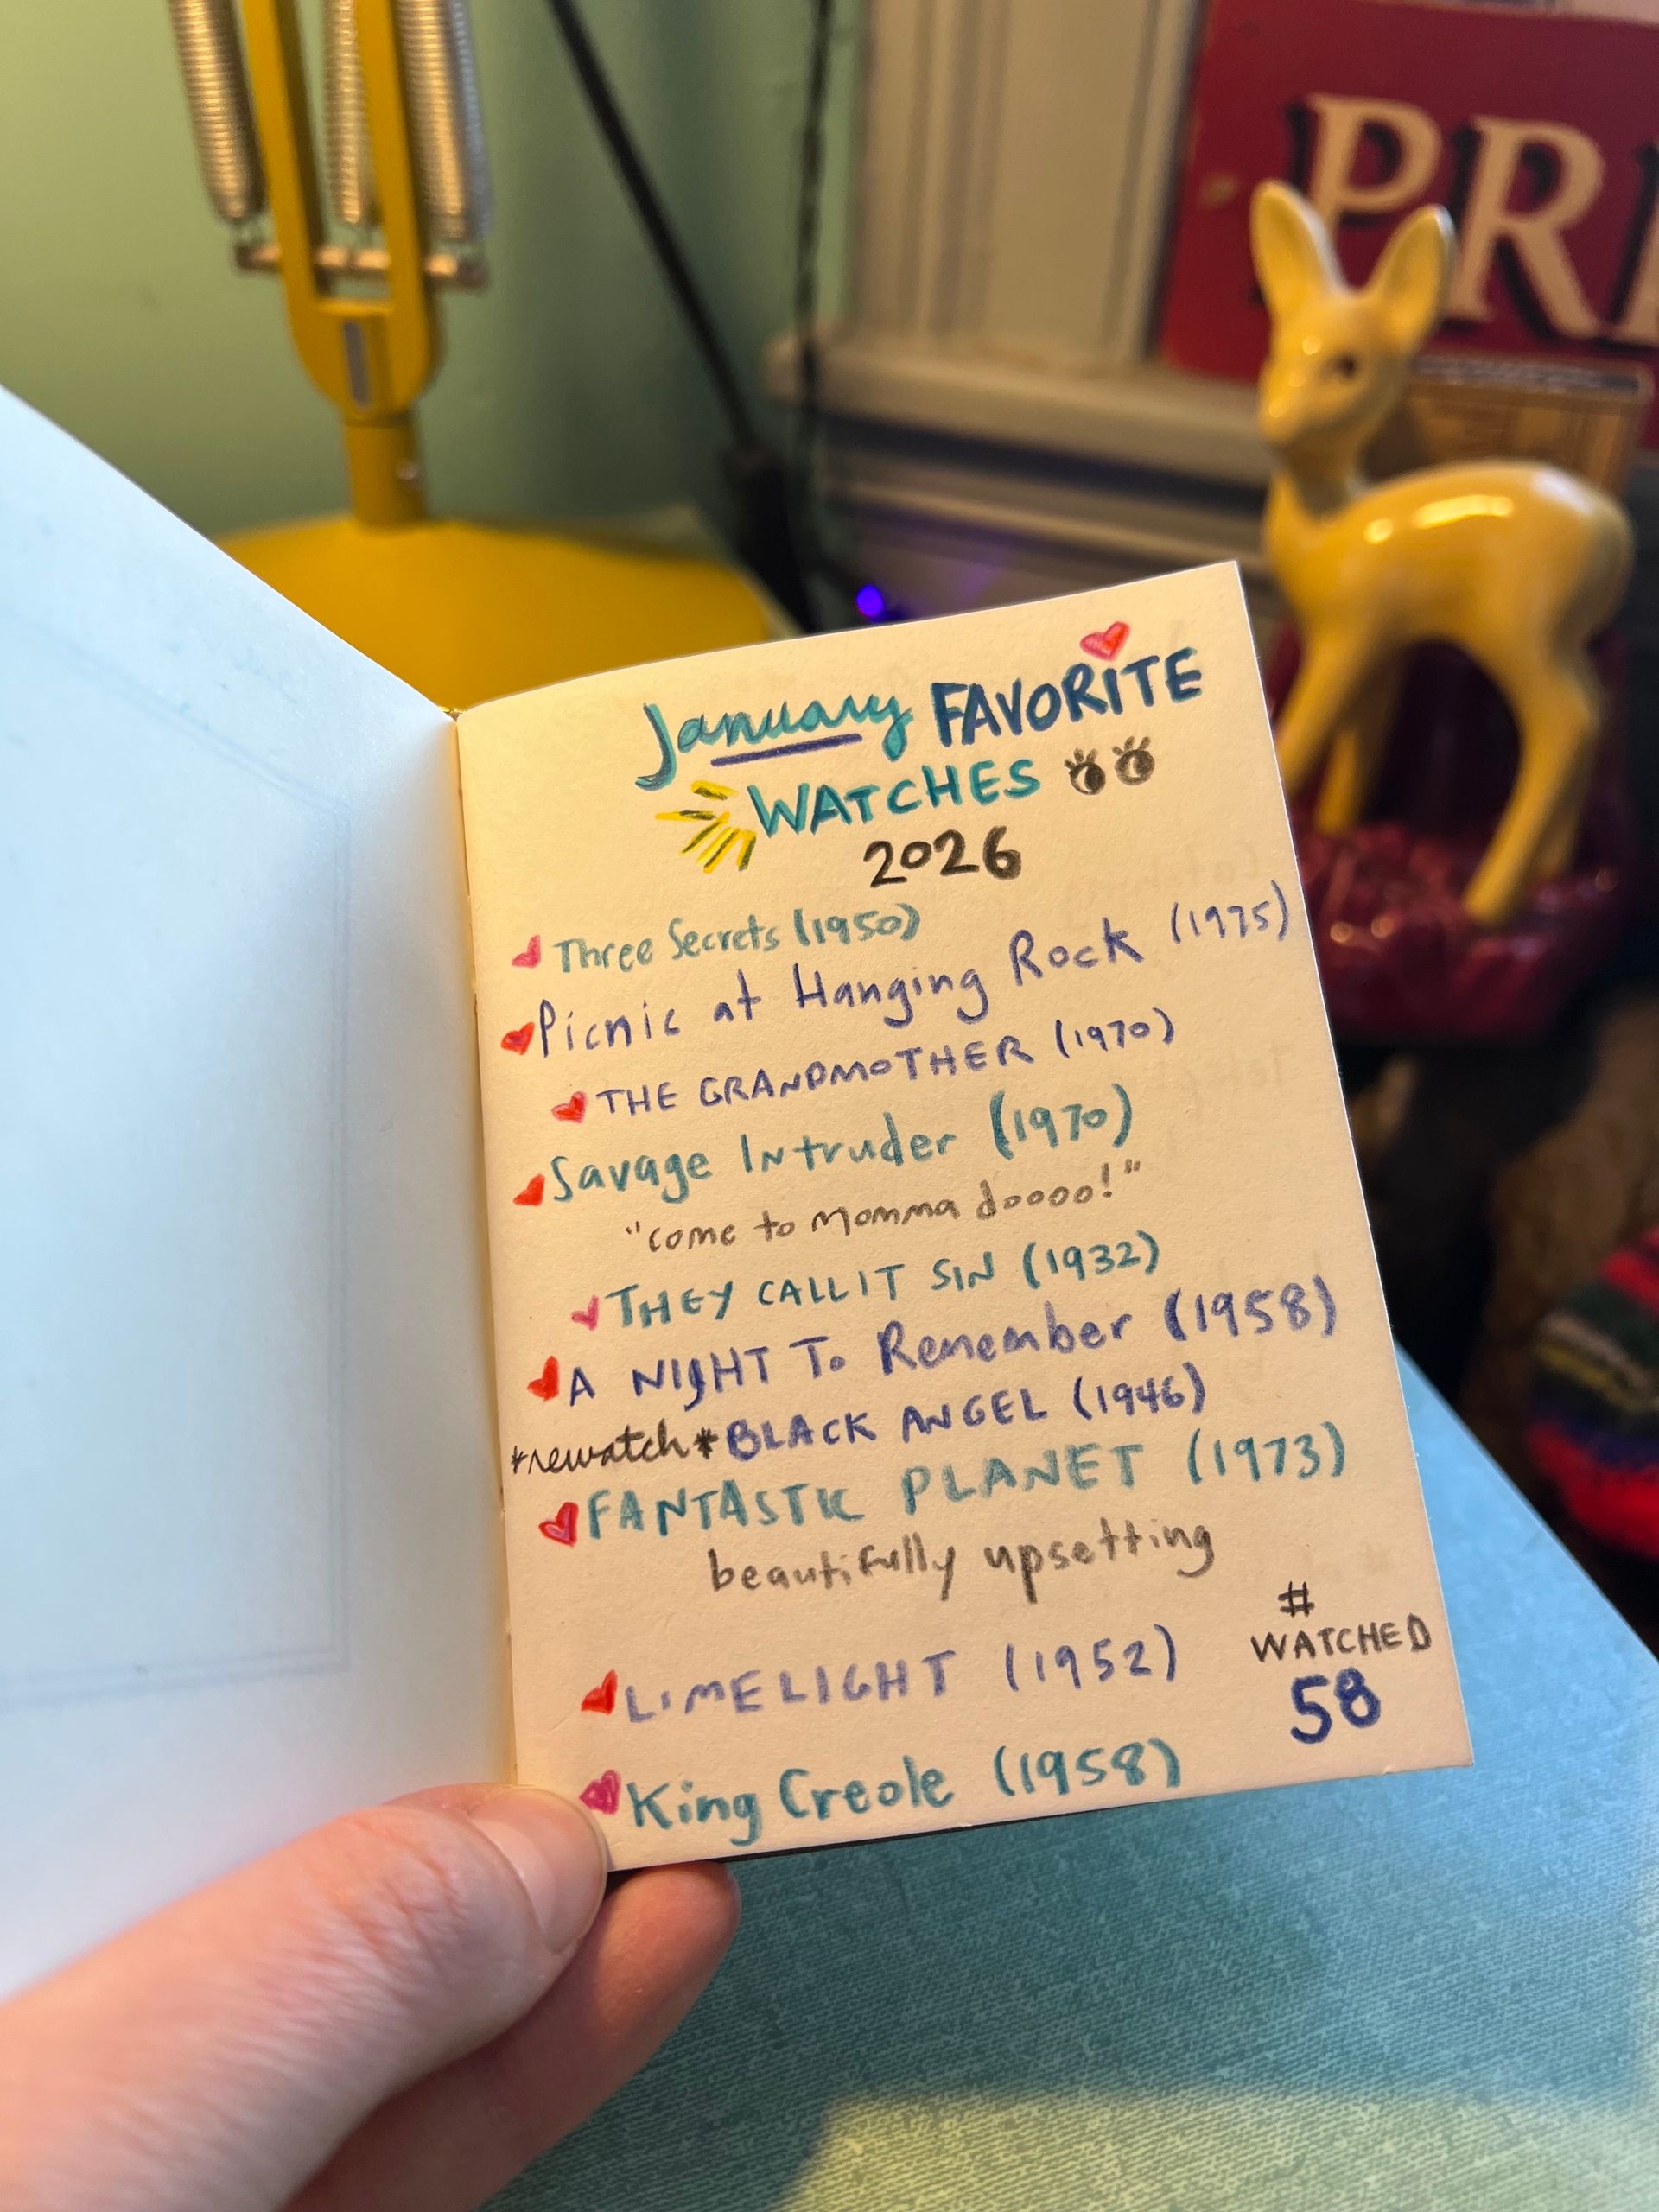 PRI
January FAVORITE
WATCHES
2026
Three Secrets (1950)
Picnic at Hanging Rock (1975)
THE GRANDMOTHER (1970)
Savage Intruder (1970)
"come to momma doooo!"
THEY CALL IT SIN (1932)
A NIGHT To Remember (1958)
*rewatch* BLACK ANGEL (1946)
FANTASTIC PLANET (1973)
beautifully upsetting
#
WATCHED
58
LIMELIGHT (1952)
King Creole (1958)